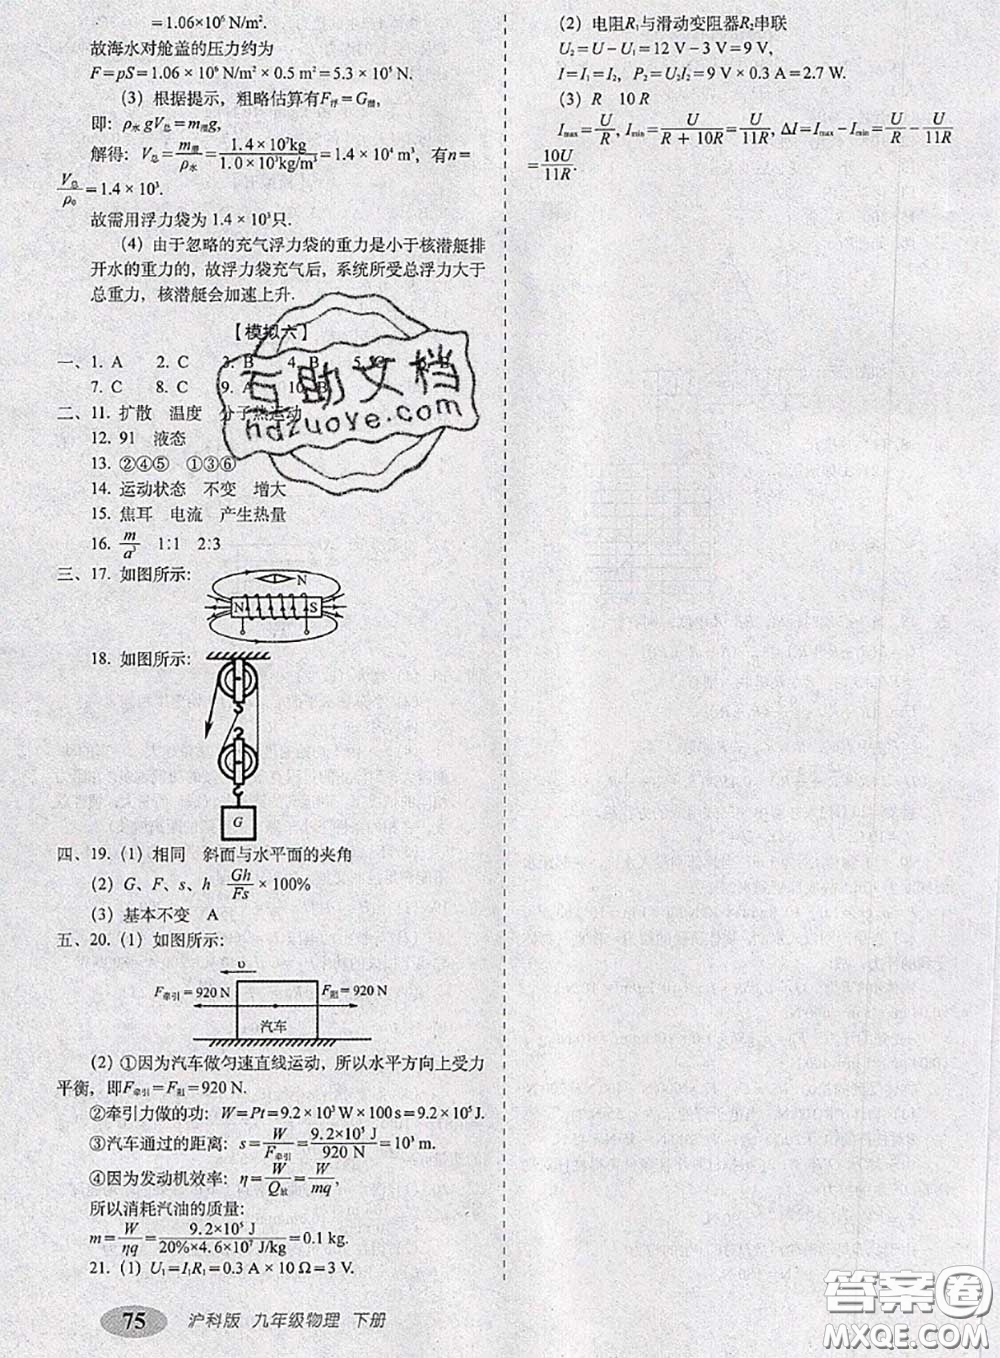 =1.06×10⁶ N/m².
故海水对舱盖的压力约为
F=pS=1.06 × 10⁶ N/m² × 0.5 m²=5.3 × 10⁵ N.
(3) 根据提示，粗略估算有F浮=G潜，
即：ρ水 gV总=m潜g，
解得：V总=m潜/ρ水=1.4 × 10⁷kg/1.0 × 10³kg/m³=1.4 × 10⁴ m³，有n=
V总/ρ₀=1.4 × 10³.
故需用浮力袋为 1.4 × 10³只.
(4) 由于忽略的充气浮力袋的重力是小于核潜艇排
开水的重力的，故浮力袋充气后，系统所受总浮力大于
总重力，核潜艇会加速上升.
【模拟六】
一、1. A 2. C 3. B 4. B
7. C 8. C 9. A 10. B
二、11. 扩散 温度 分子热运动
12. 91 液态
13. ②④⑤ ①③⑥
14. 运动状态 不变 增大
15. 焦耳 电流 产生热量
16. m/a³ 1:1 2:3
三、17. 如图所示：
N
N S
18. 如图所示：
G
四、19. (1) 相同 斜面与水平面的夹角
(2) G、F、s、h Gh/Fs × 100%
(3) 基本不变 A
五、20. (1) 如图所示：
υ
F牵引=920 N F阻=920 N
汽车
(2) ①因为汽车做匀速直线运动，所以水平方向上受力
平衡，即F牵引=F阻=920 N.
②牵引力做的功：W=Pt=9.2 × 10³ W × 100 s=9.2 × 10⁵ J.
③汽车通过的距离：s=W/F牵引=9.2×10⁵ J/920 N=10³ m.
④因为发动机效率：η=W/Q放=W/mq，
所以消耗汽油的质量：
m=W/ηq=9.2×10⁵ J/20%×4.6×10⁷ J/kg=0.1 kg.
21. (1) U₁=I₁R₁=0.3 A × 10 Ω=3 V.
75 沪科版 九年级物理 下册
(2) 电阻R₁与滑动变阻器R₂串联
U₂=U－U₁=12 V－3 V=9 V，
I=I₁=I₂，P₂=U₂I₂=9 V × 0.3 A=2.7 W.
(3) R 10 R
Imax=U/R，Imin=U/R + 10R=U/11R，ΔI=Imax－Imin=U/R－U/11R
=10U/11R.
互助文档
hdzuove.com
答案圈
MXQE.COM